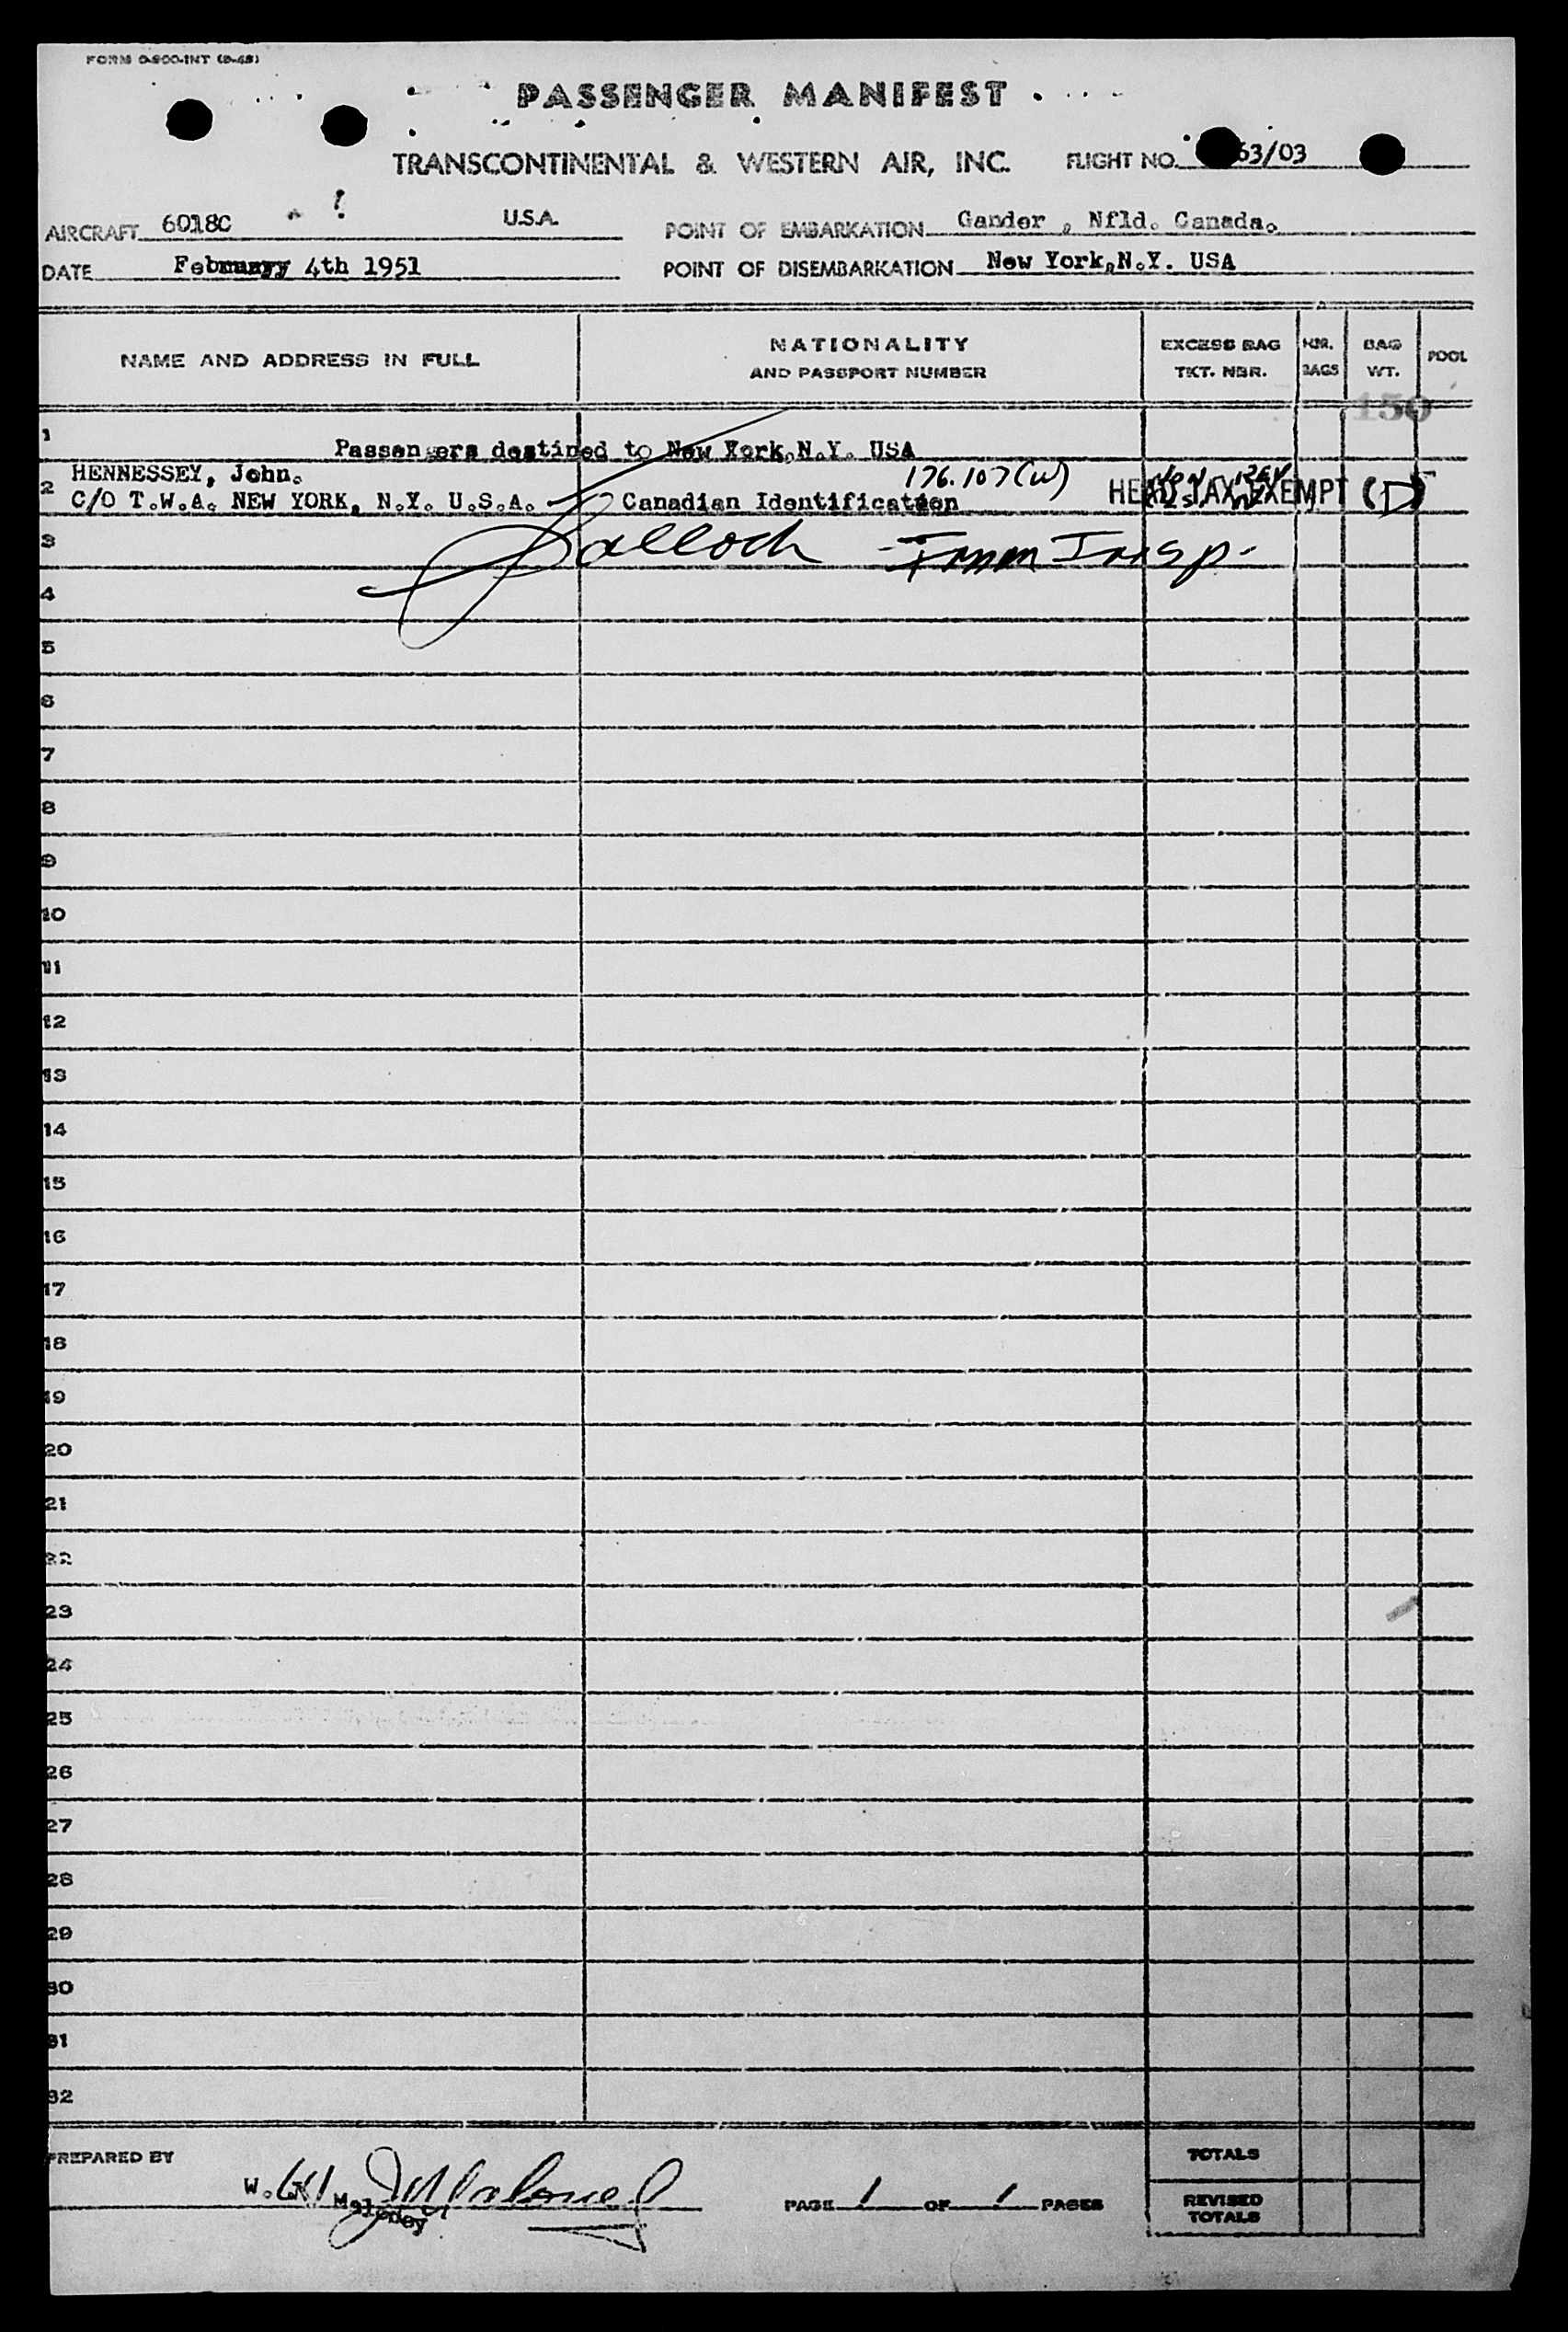 FORM O-800-INT (8-48)
PASSENGER MANIFEST
TRANSCONTINENTAL & WESTERN AIR, INC. FLIGHT NO. 63/03
AIRCRAFT 6018C U.S.A. POINT OF EMBARKATION Gander , Nfld. Canada.
DATE February 4th 1951 POINT OF DISEMBARKATION New York,N.Y. USA
NAME AND ADDRESS IN FULL NATIONALITY AND PASSPORT NUMBER EXCESS BAG TKT. NBR. NBR. BAGS BAG WT. POOL
150
1 Passengers destined to New York,N.Y. USA
HENNESSEY, John. 176.107(W)
2 C/O T.W.A. NEW YORK, N.Y. U.S.A. Canadian Identification HEAD TAX EXEMPT (D)
3 Imm Insp.
4
5
6
7
8
9
10
11
12
13
14
15
16
17
18
19
20
21
22
23
24
25
26
27
28
29
30
31
32
PREPARED BY TOTALS
W. Maloney PAGE 1 OF 1 PAGES REVISED TOTALS